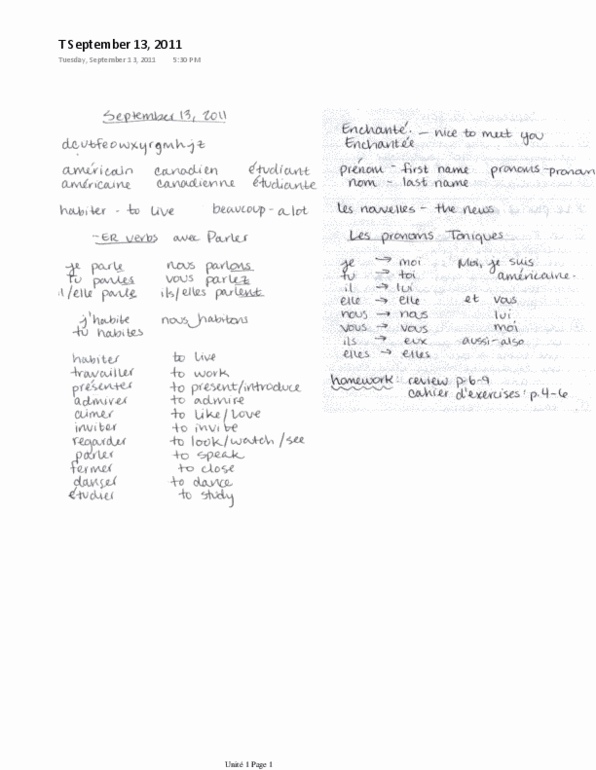 T September 13, 2011
Tuesday, September 13, 2011 5:30 PM
September 13, 2011
américain canadien étudiant
américaine canadienne étudiante
habiter - to live beaucoup - a lot
-ER verbs avec Parler
je parle nous parlons
tu parles vous parlez
il/elle parle ils/elles parlent
j'habite nous habitons
tu habites
habiter to live
travailler to work
présenter to present/introduce
admirer to admire
aimer to like/love
inviter to invite
regarder to look/watch/see
parler to speak
fermer to close
danser to dance
étudier to study
Enchanté. - nice to meet you
Enchantée
prénom - first name pronoms - pronoun
nom - last name
les nouvelles - the news
Les pronoms Toniques
je → moi Moi, je suis
tu → toi américaine.
il → lui
elle → elle et vous
nous → nous lui
vous → vous moi
ils → eux aussi - also
elles → elles
homework: review p. 6-9
cahier d'exercises: p. 4-6
Unité 1 Page 1